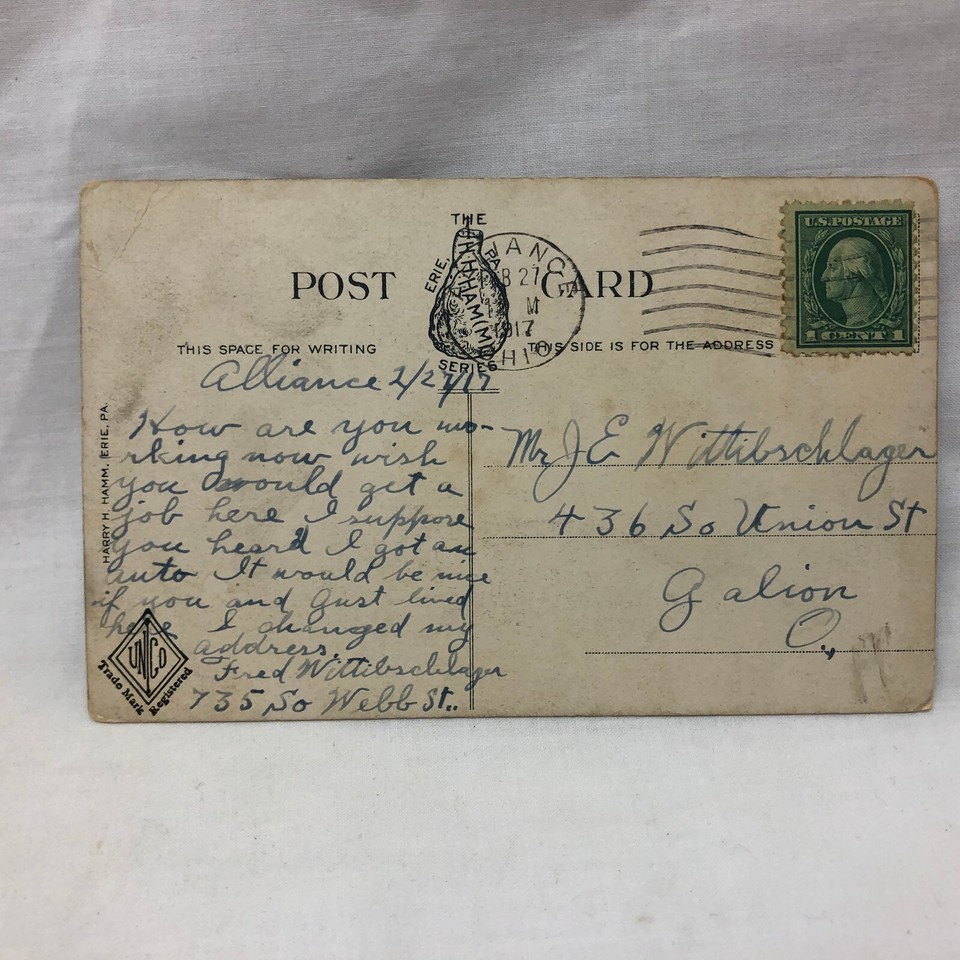 THE
ERIE, PA.
H.H.HAMM
SERIES
POST CARD
ANCE
FEB 27
M
1917
OHIO
U.S.POSTAGE
1 CENT 1
THIS SPACE FOR WRITING
THIS SIDE IS FOR THE ADDRESS
Alliance 2/27/17
How are you wo-
rking now wish
you would get a
job here I suppose
you heard I got an
auto It would be nice
if you and Gust lived
here I changed my
address.
Fred Wittibschlager
735 So Webb St..
Mr J E Wittibschlager
436 So Union St
Galion
O.,
HARRY H. HAMM, ERIE, PA.
UNCO
Trade Mark Registered